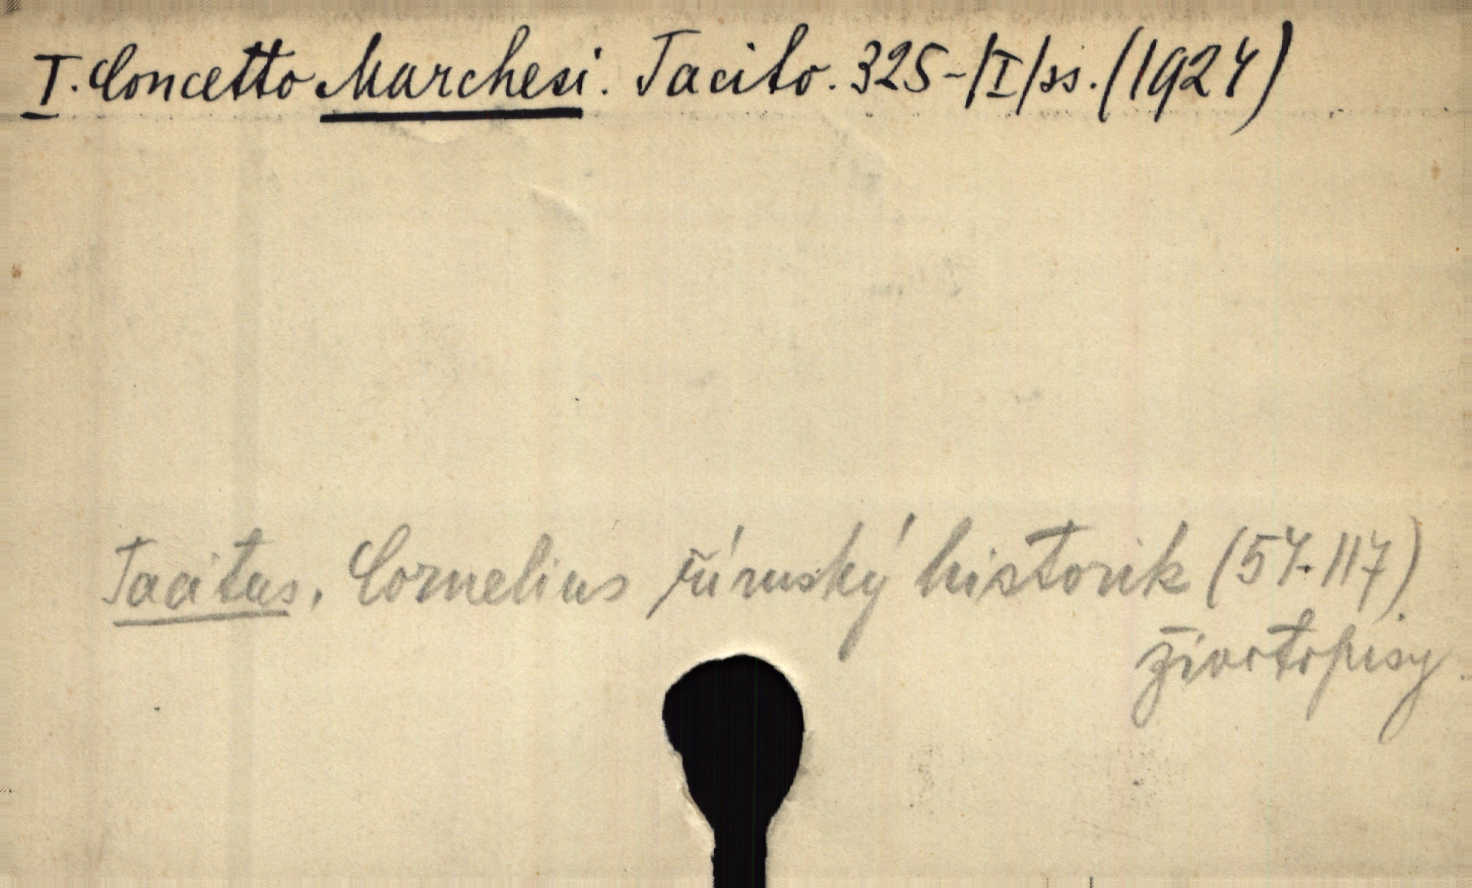 I. Concetto Marchesi. Tacito. 325-/I/ss. (1924)
Tacitus, Cornelius římský historik (54-117)
životopisy